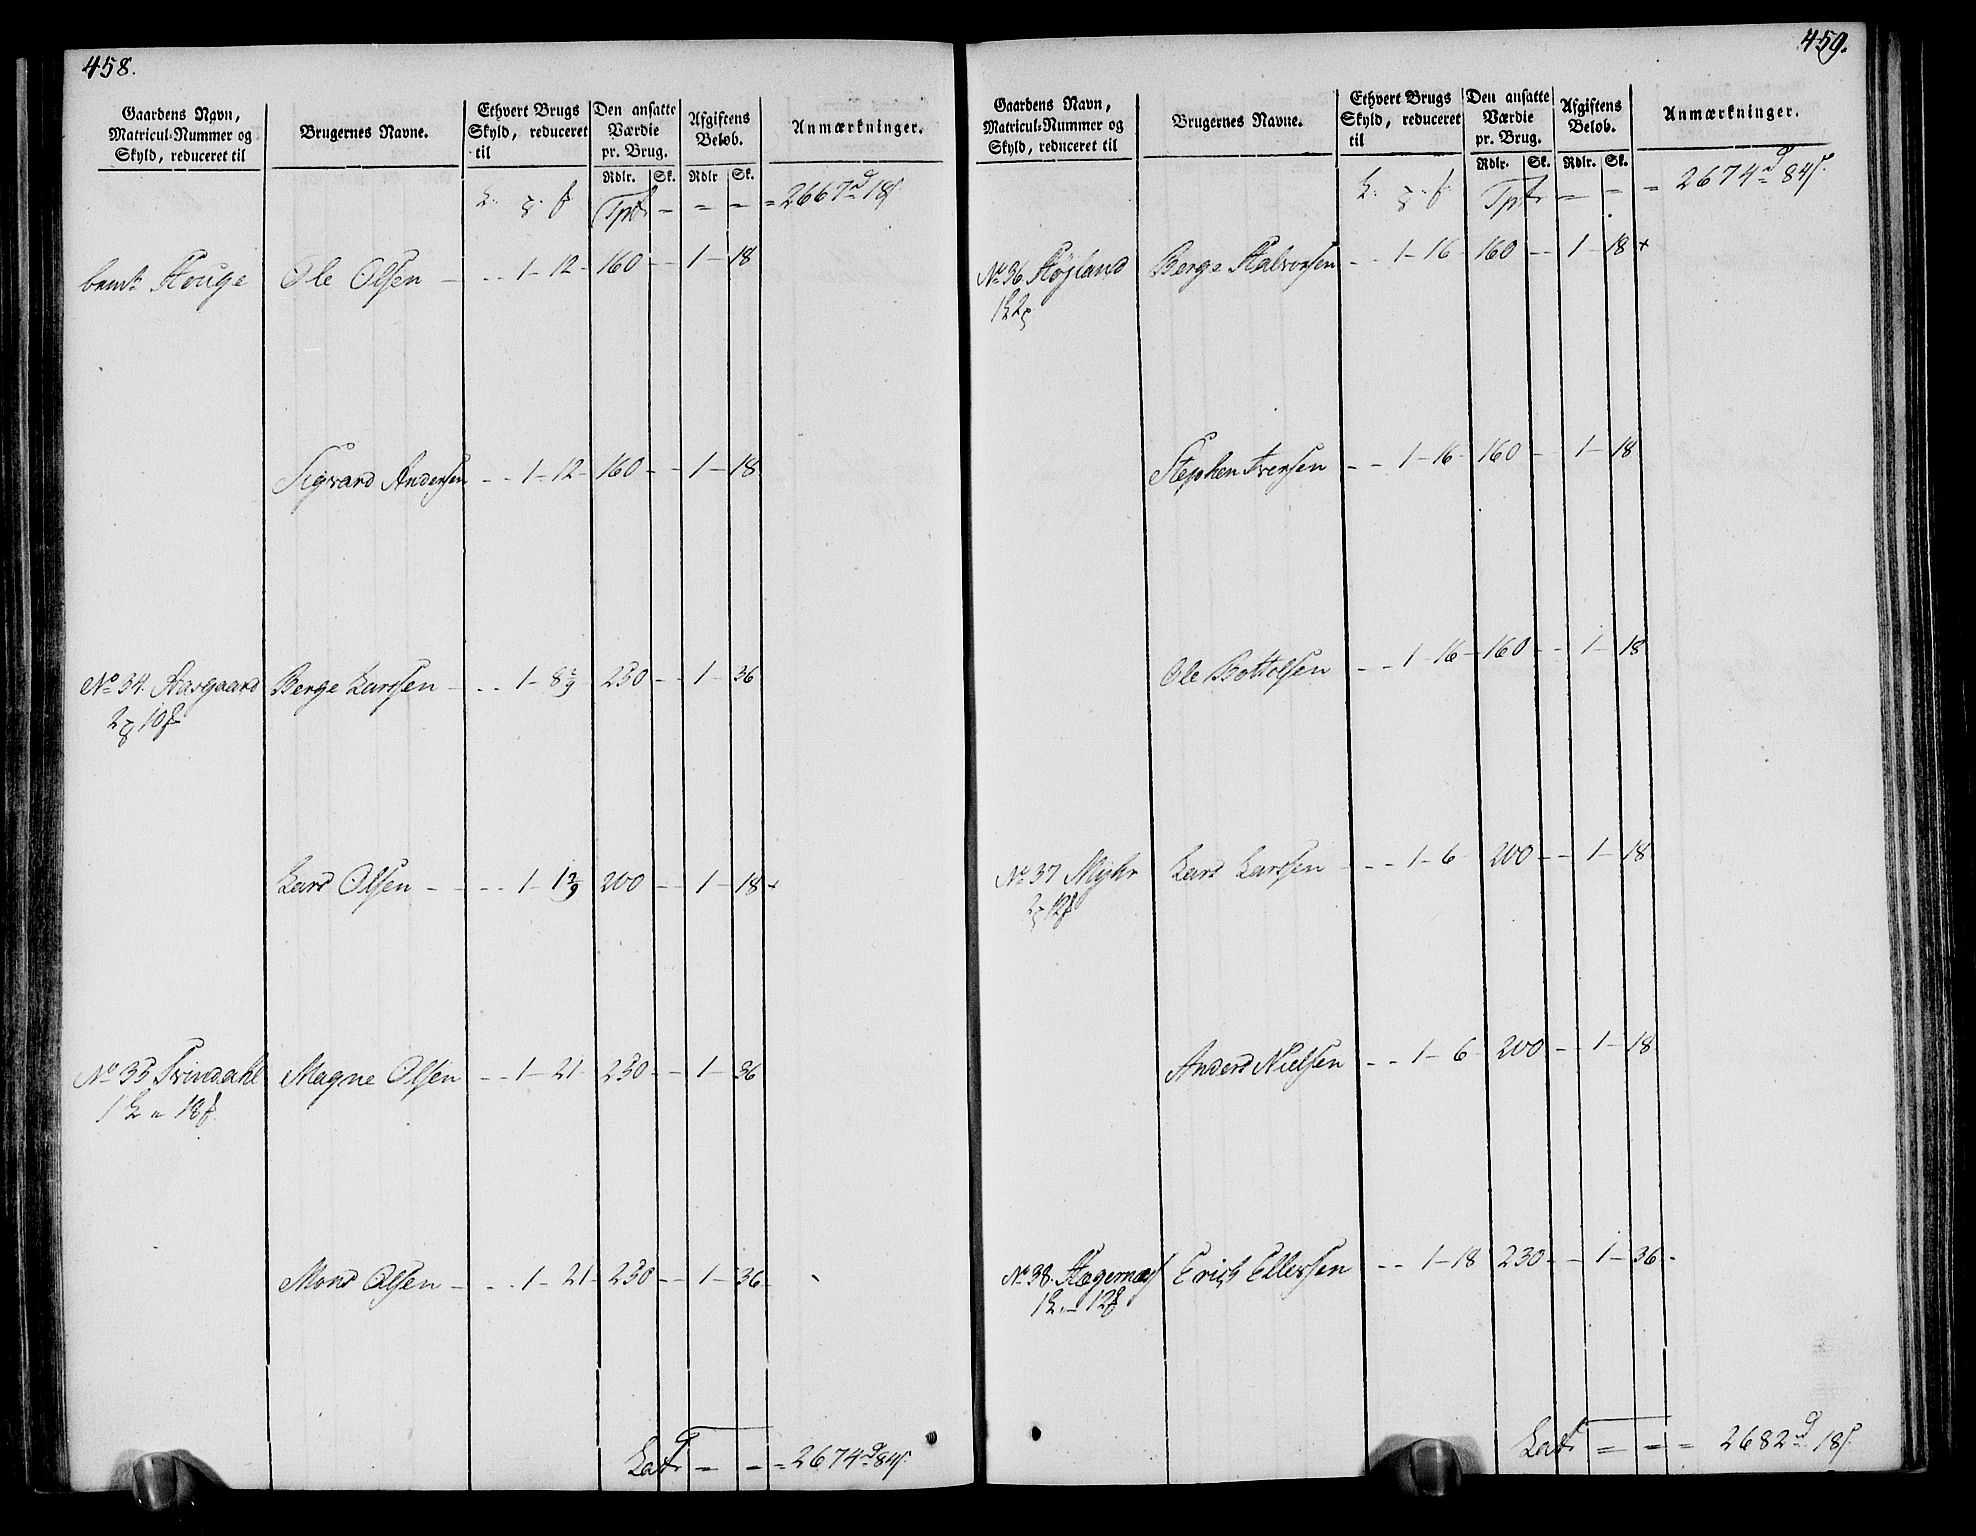 458.
Gaardens Navn, Matricul-Nummer og Skyld, reduceret til
Brugernes Navne.
Ethvert Brugs Skyld, reduceret til
Den ansatte Værdie pr. Brug.
Afgiftens Beløb.
Anmærkninger.
Rdlr. Sk. Rdlr Sk.
Tpt = = = = 2667 18
Houge Ole Olsen - - - 1 - 12 - 160 - - 1 - 18
Sigvard Andersen - - 1 - 12 - 160 - - 1 - 18
No 34. Aasgaard Berge Larssen - - - 1 - 8 2/9 250 - - 1 - 36
2 10
Lars Olsen - - - - 1 - 1 2/9 200 - - 1 - 18 +
No 35 Tvindahl Magne Olsen - - 1 - 21 - 250 - - 1 - 36
1 " 18
Mons Olsen - - - 1 - 21 - 250 - - 1 - 36
Lat = = = 2674 84
459.
Gaardens Navn, Matricul-Nummer og Skyld, reduceret til
Brugernes Navne.
Ethvert Brugs Skyld, reduceret til
Den ansatte Værdie pr. Brug.
Afgiftens Beløb.
Anmærkninger.
Rdlr. Sk. Rdlr. Sk.
Tpt = = = 2674 84
No 36 Højland Berge Halvorsen - - 1 - 16 160 - - 1 - 18 +
1 2
Stephen Iversen - - 1 - 16 - 160 - - 1 - 18
Ole Bottolsen - - 1 - 16 - 160 - - 1 - 18
No 37 Myhr Lars Larssen - - - 1 - 6 200 - - 1 - 18
2 12
Anders Nielsen - - 1 - 6 - 200 - - 1 - 18
No 38. Hægernæs Erich Ellefsen - - 1 - 18 230 - - 1 - 36 -
1 " 12
Lat = = = 2682 18